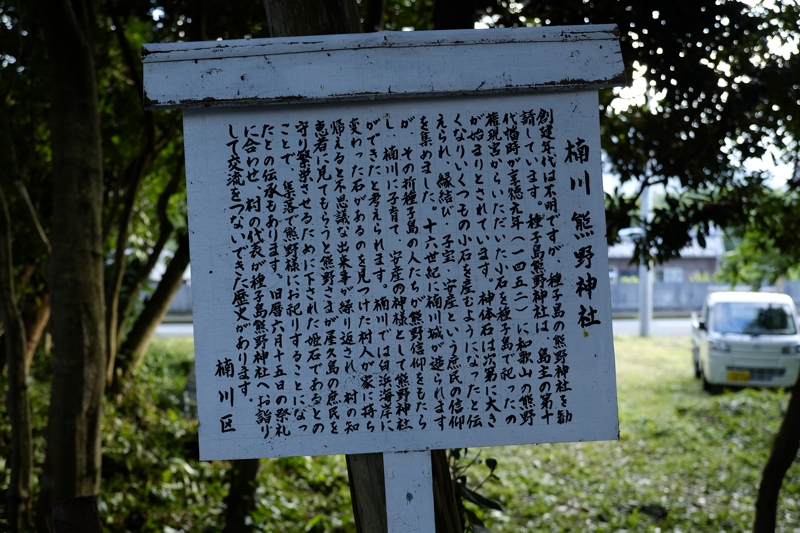 楠川 熊野神社
創建年代は不明ですが、種子島の熊野神社を勧
請しています。種子島熊野神社は、島主の第十
代幡時が享徳元年(一四五二)に和歌山の熊野
権現宮からいただいた小石を種子島で祀ったの
が始まりとされています。神体石は次第に大き
くなり、いくつもの小石を産むようになったと伝
えられ、縁結び、子宝、安産という庶民の信仰
を集めました。十六世紀に楠川城が造られます
が、その折種子島の人たちが熊野信仰をもたら
し、楠川に子育て、安産の神様として熊野神社
ができたと考えられます。楠川では白浜海岸に
変わった石があるのを見つけた村人が家に持ち
帰えると不思議な出来事が繰り返され、村の知
恵者に見てもらうと熊野さまが屋久島の庶民を
守り繁栄させるために下された姫石であるとの
ことで、集落で熊野様にお祀りすることになっ
たとの伝承もあります。旧暦六月十五日の祭礼
に合わせ、村の代表が種子島熊野神社へお詣り
して交流をつないできた歴史があります。
楠川区